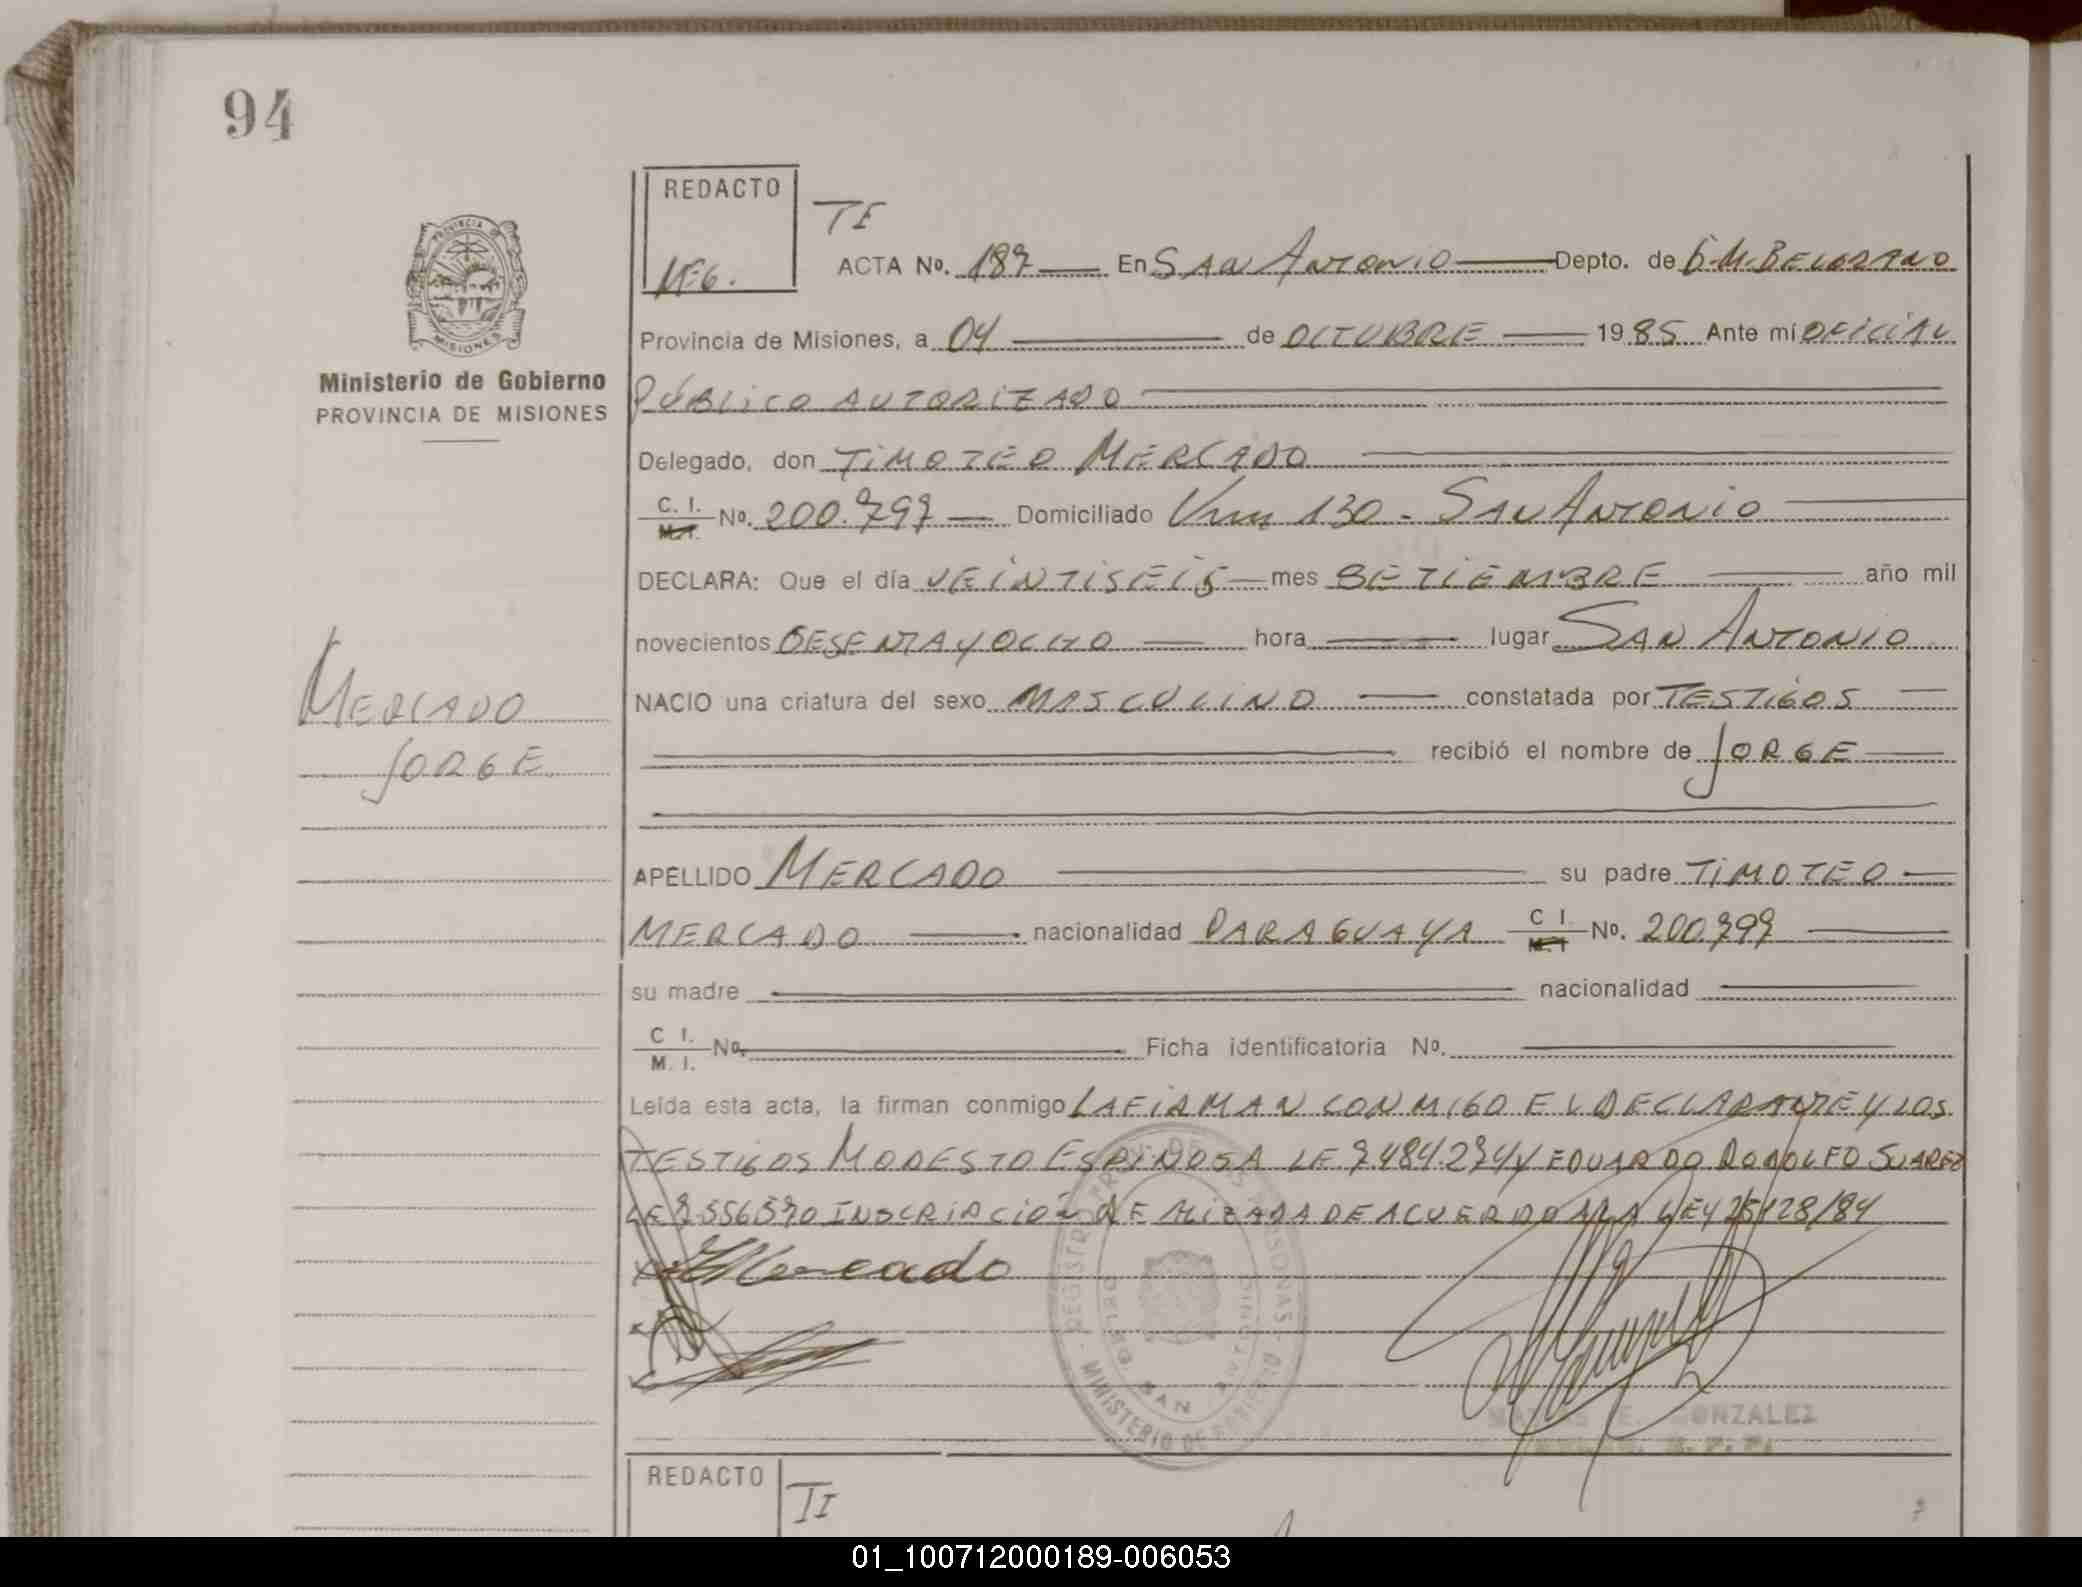 94
REDACTO
TI
MEG.
ACTA No. 187 En SAN ANTONIO Depto. de G.M.BELGRANO
PROVINCIA
MISIONES
Ministerio de Gobierno
PROVINCIA DE MISIONES
Provincia de Misiones, a 04 de OCTUBRE 1985 Ante mí OFICIAL
PÚBLICO AUTORIZADO
Delegado, don TIMOTEO MERCADO
C. I.
M. I. No. 200.797 Domiciliado Km 130 - SAN ANTONIO
DECLARA: Que el día VEINTISEIS mes SETIEMBRE año mil
novecientos SESENTA Y OCHO hora lugar SAN ANTONIO
MERCADO
JORGE
NACIO una criatura del sexo MASCULINO constatada por TESTIGOS
recibió el nombre de JORGE
APELLIDO MERCADO su padre TIMOTEO
MERCADO nacionalidad PARAGUAYA C I. M. I No. 200.797
su madre nacionalidad
C I.
M. I. No. Ficha identificatoria No.
Leída esta acta, la firman conmigo LA FIRMAN CONMIGO EL DECLARANTE Y LOS
TESTIGOS MODESTO ESPINOSA LE 7.484.274 Y EDUARDO RODOLFO SUAREZ
LE 7.556570 INSCRIPCIÓN REALIZADA DE ACUERDO A LA LEY 23128/84
Mercado
REGISTRO PROV. DE LAS PERSONAS
MINISTERIO DE GOBIERNO
DELEG. SAN ANTONIO
GONZALEZ
REDACTO
TI
01_100712000189-006053